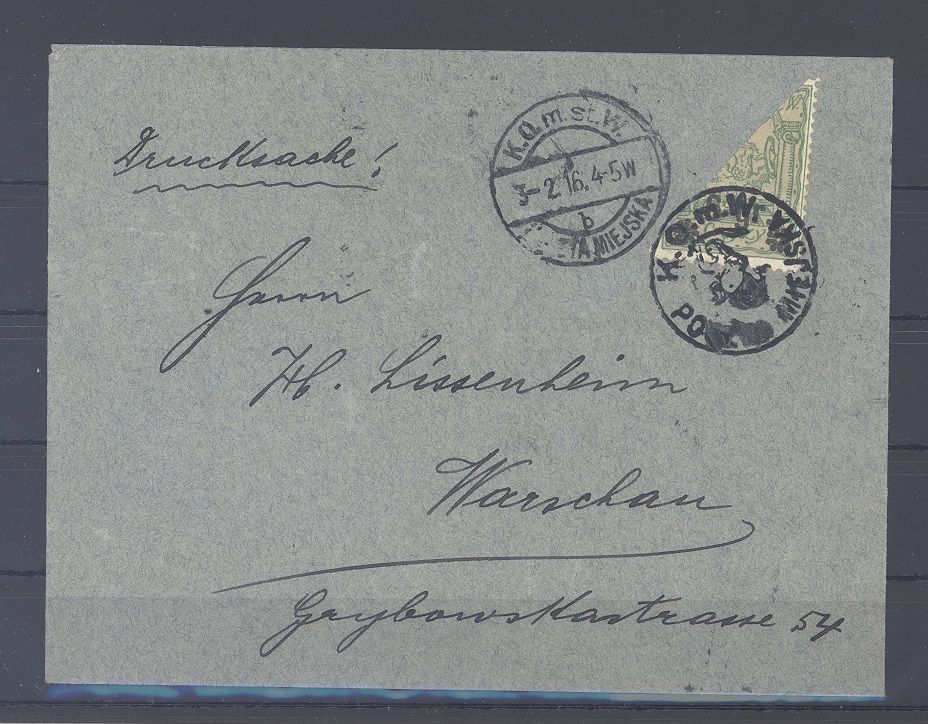 Drucksache!
K.O.m.st.W.
3-2.16.4-5W
b
MIEJSKA
K.O.m.S.W.
MIEJSKA
Herrn
H. Lissenheim
Warschau
Grybowskastrasse 54